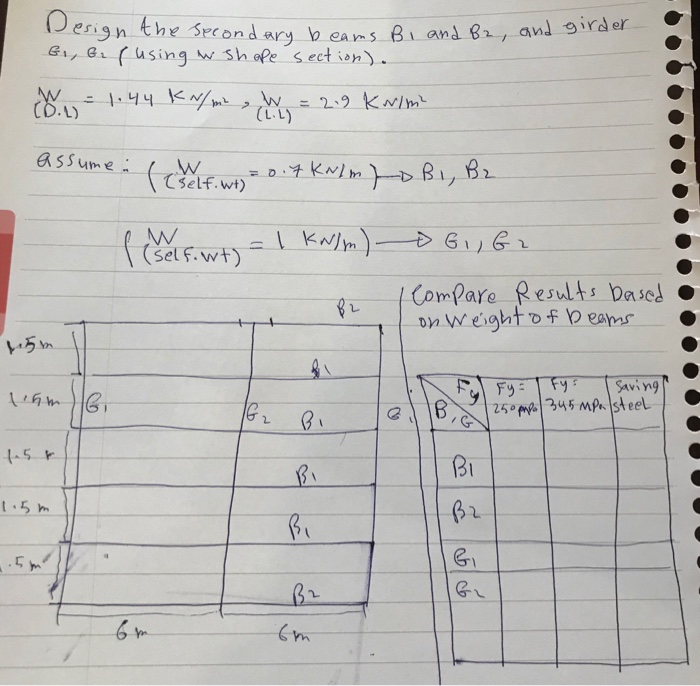 Design the secondary beams B1 and B2, and girder
G1, G2 (using w shape section).
W (D.L) = 1.44 KN/m², W (L.L) = 2.9 KN/m²
assume: (W (self.wt) = 0.7 KN/m) → B1, B2
(W (self.wt) = 1 KN/m) → G1, G2
Compare Results based
on weight of beams
B2
1.5m
B1
1.5m
G1
G2
B1
G1
1.5
B1
1.5 m
B1
.5m
B2
6m
6m
Fy
B,G
Fy= 250 MPa
Fy= 345 MPa
Saving steel
B1
B2
G1
G2